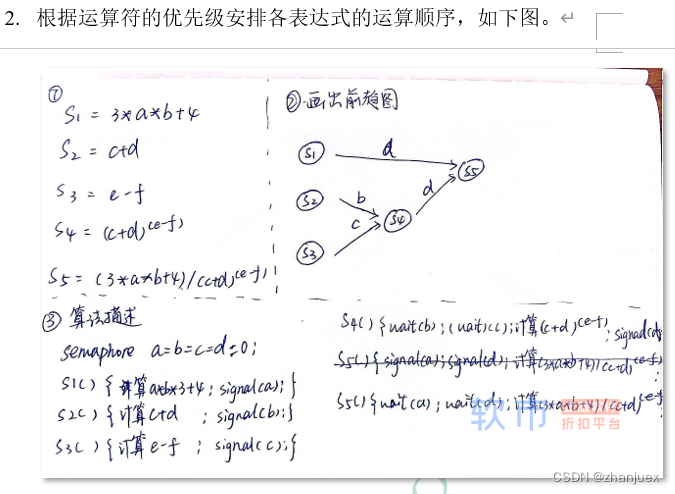 2. 根据运算符的优先级安排各表达式的运算顺序，如下图。
①
S1 = 3*a*b+4
S2 = c+d
S3 = e-f
S4 = (c+d)^(e-f)
S5 = (3*a*b+4)/(c+d)^(e-f)
②画出前趋图
S1
d
S5
S2
b
d
S4
c
S3
③ 算法描述
semaphore a=b=c=d=0;
S1() {计算a*b*3+4; signal(a);}
S2() {计算c+d ; signal(b);}
S3() {计算e-f ; signal(c);}
S4() {wait(b); (wait)(c); 计算(c+d)^(e-f); signal(d);
S5() {signal(a); signal(d); 计算(3*a*b+4)/(c+d)^(e-f);
S5() {wait(a); wait(d); 计算(3*a*b+4)/(c+d)^(e-f);
软币
折扣平台
CSDN @zhanjuex